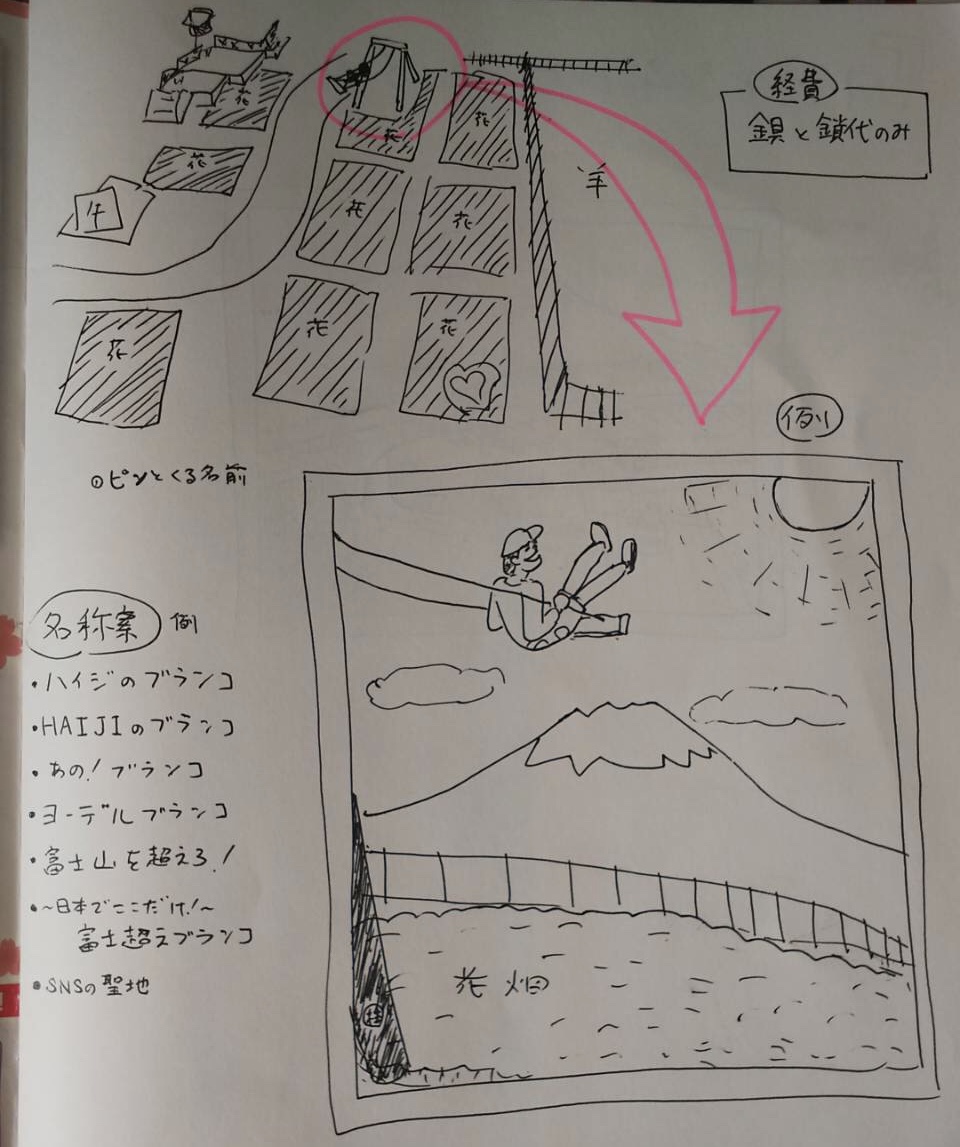 経費
鋇と鎖代のみ
花
花
花
花
羊
牛
花
花
花
花
花
例
①ピンとくる名前
名称案 例
・ハイジのブランコ
・HAIJIのブランコ
・あの！ブランコ
・ヨーデルブランコ
・富士山を超えろ！
・～日本でここだけ！～
富士超えブランコ
・SNSの聖地
花畑